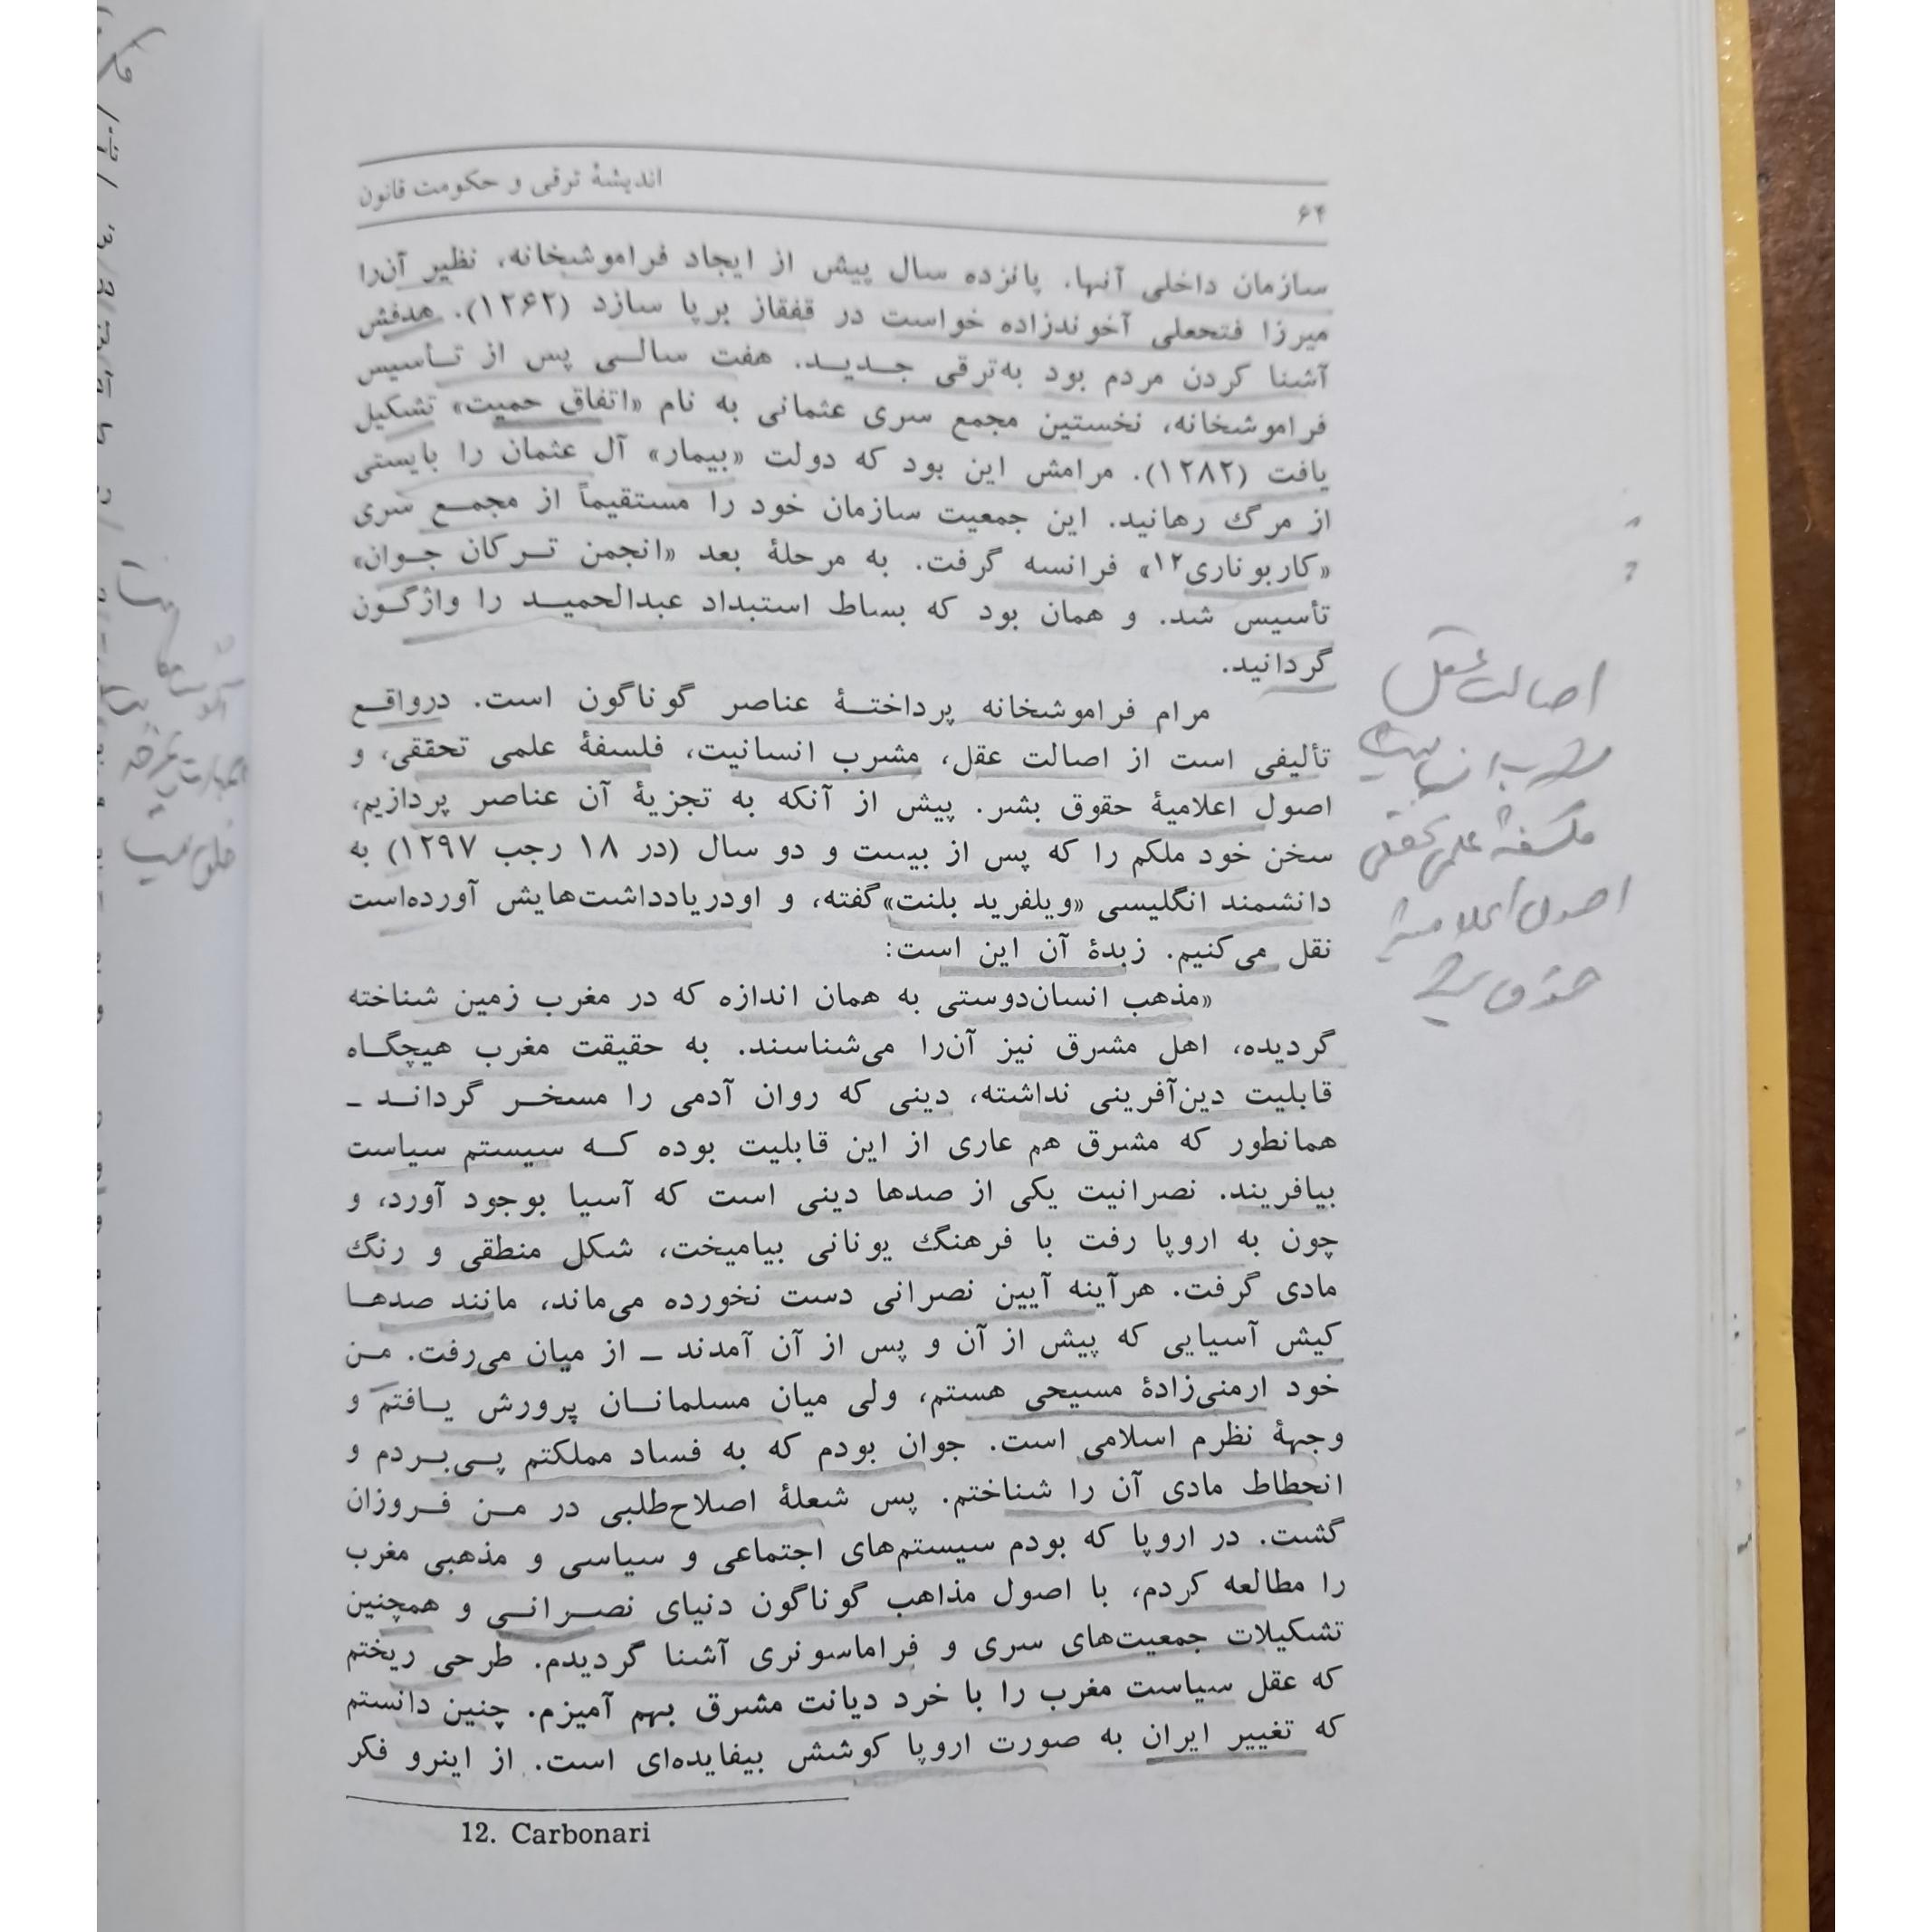 اندیشهٔ ترقی و حکومت قانون
۶۴
سازمان داخلی آنها. پانزده سال پیش از ایجاد فراموشخانه، نظیر آن‌را
میرزا فتحعلی آخوندزاده خواست در قفقاز برپا سازد (۱۲۶۲). هدفش
آشنا کردن مردم بود به‌ترقی جدید. هفت سالی پس از تأسیس
فراموشخانه، نخستین مجمع سری عثمانی به نام «اتفاق حمیت» تشکیل
یافت (۱۲۸۲). مرامش این بود که دولت «بیمار» آل عثمان را بایستی
از مرگ رهانید. این جمعیت سازمان خود را مستقیماً از مجمع سری
«کاربوناری۱۲» فرانسه گرفت. به مرحلهٔ بعد «انجمن ترکان جوان»
تأسیس شد. و همان بود که بساط استبداد عبدالحمید را واژگون
گردانید.
مرام فراموشخانه پرداختهٔ عناصر گوناگون است. درواقع
تألیفی است از اصالت عقل، مشرب انسانیت، فلسفهٔ علمی تحققی، و
اصول اعلامیهٔ حقوق بشر. پیش از آنکه به تجزیهٔ آن عناصر پردازیم،
سخن خود ملکم را که پس از بیست و دو سال (در ۱۸ رجب ۱۲۹۷) به
دانشمند انگلیسی «ویلفرید بلنت» گفته، و اودریادداشت‌هایش آورده‌است
نقل می‌کنیم. زبدهٔ آن این است:
«مذهب انسان‌دوستی به همان اندازه که در مغرب زمین شناخته
گردیده، اهل مشرق نیز آن‌را می‌شناسند. به حقیقت مغرب هیچگاه
قابلیت دین‌آفرینی نداشته، دینی که روان آدمی را مسخر گرداند ـ
همانطور که مشرق هم عاری از این قابلیت بوده که سیستم سیاست
بیافریند. نصرانیت یکی از صدها دینی است که آسیا بوجود آورد، و
چون به اروپا رفت با فرهنگ یونانی بیامیخت، شکل منطقی و رنگ
مادی گرفت. هرآینه آیین نصرانی دست نخورده می‌ماند، مانند صدها
کیش آسیایی که پیش از آن و پس از آن آمدند ـ از میان می‌رفت. من
خود ارمنی‌زادهٔ مسیحی هستم، ولی میان مسلمانان پرورش یافتم و
وجههٔ نظرم اسلامی است. جوان بودم که به فساد مملکتم پی‌بردم و
انحطاط مادی آن را شناختم. پس شعلهٔ اصلاح‌طلبی در من فروزان
گشت. در اروپا که بودم سیستم‌های اجتماعی و سیاسی و مذهبی مغرب
را مطالعه کردم، با اصول مذاهب گوناگون دنیای نصرانی و همچنین
تشکیلات جمعیت‌های سری و فراماسونری آشنا گردیدم. طرحی ریختم
که عقل سیاست مغرب را با خرد دیانت مشرق بهم آمیزم. چنین دانستم
که تغییر ایران به صورت اروپا کوشش بیفایده‌ای است. از اینرو فکر
12. Carbonari
اصالت عقل
مشرب انسانیت
فلسفهٔ علمی تحققی
اصول اعلامیهٔ
حقوق بشر